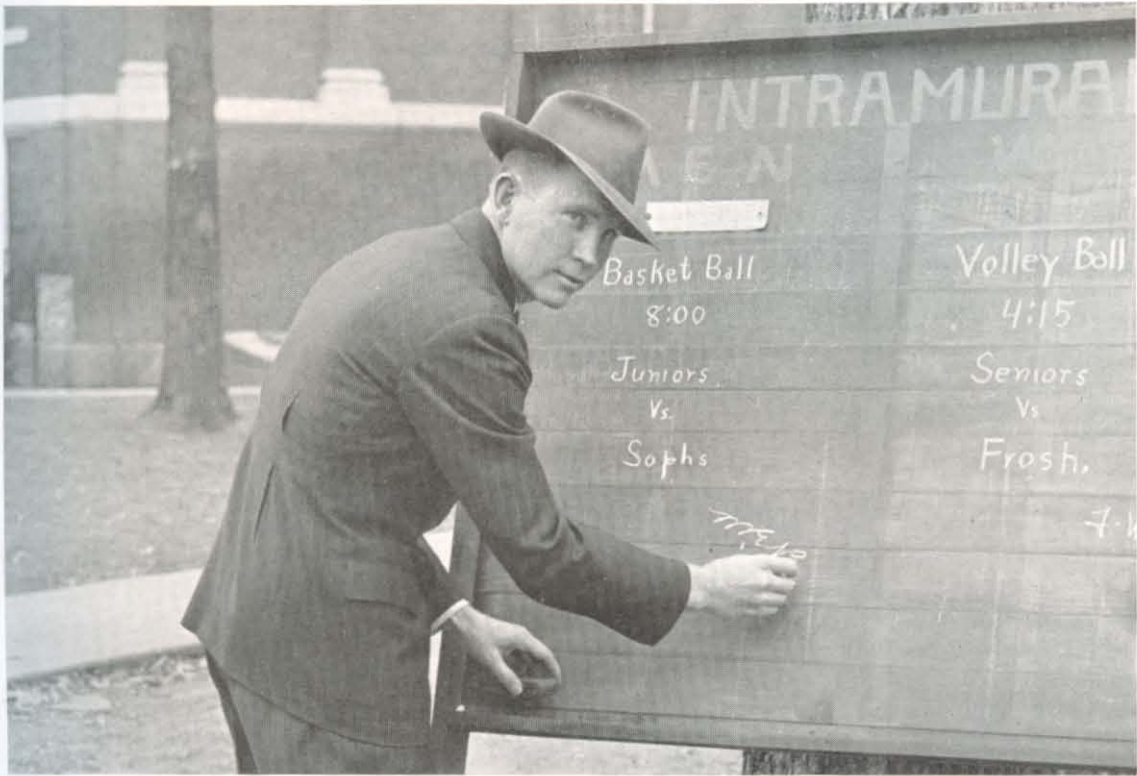 INTRAMURAL
MEN
Basket Ball
8:00
Juniors
Vs.
Sophs
Volley Ball
4:15
Seniors
Vs
Frosh.